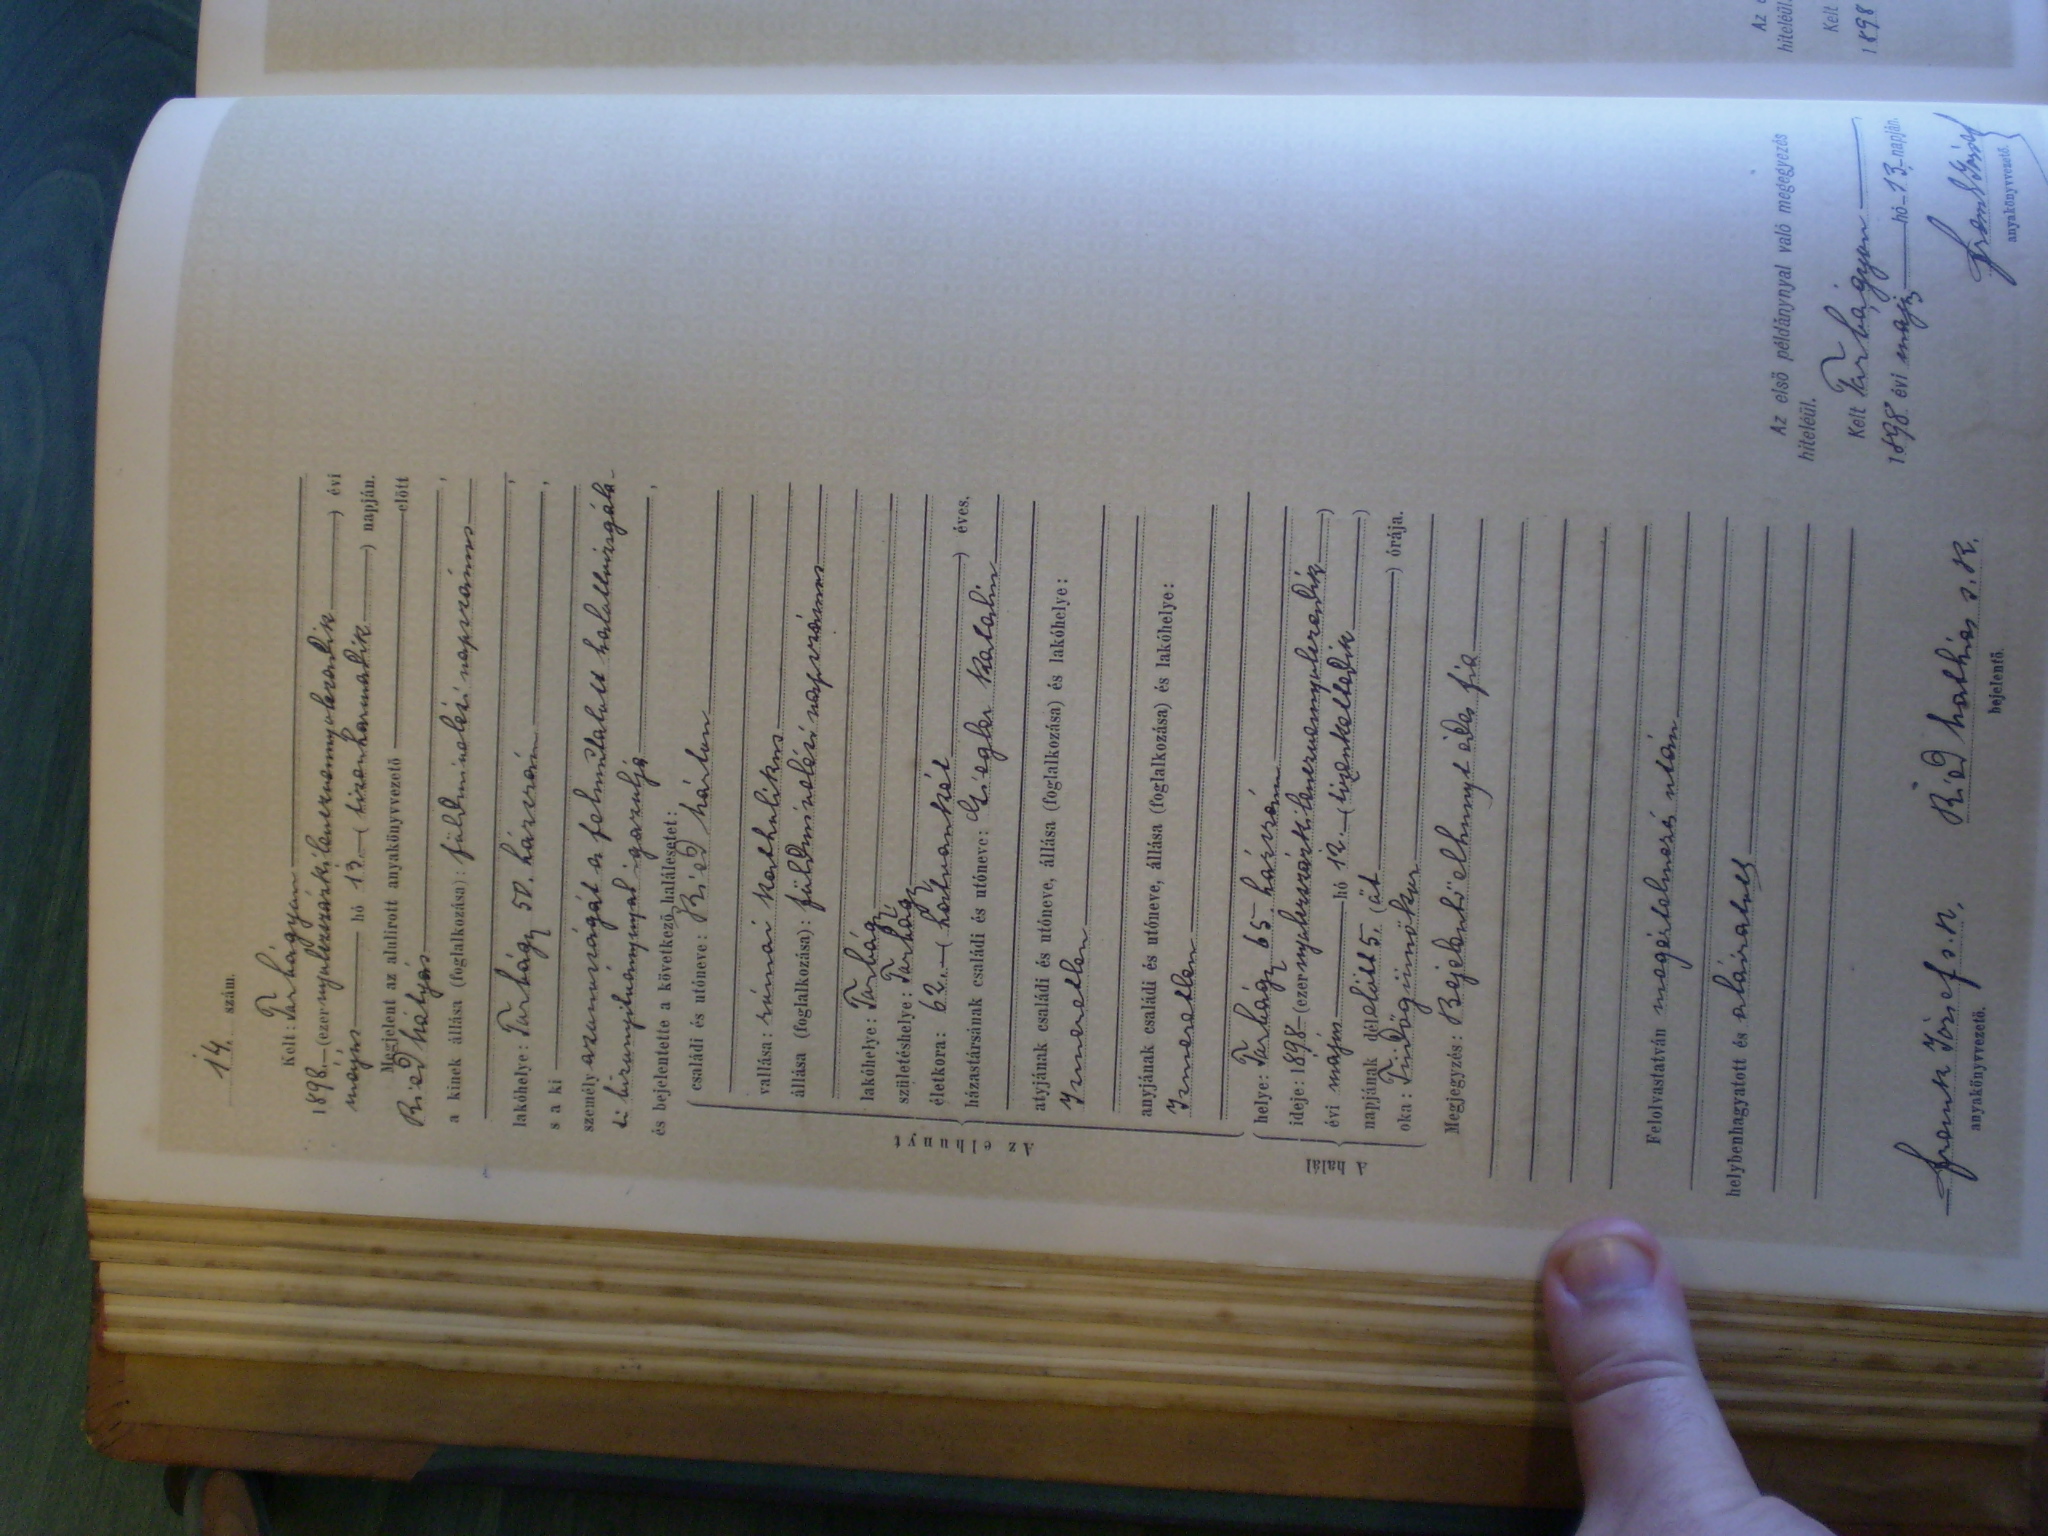 14. szám.
Kelt: Torbágyon
1898.-(ezernyolczszázkilenczvennyolczadik) évi
május hó 13.-(tizenharmadik) napján.
Megjelent az alulirott anyakönyvvezető előtt
Ried Mátyás,
a kinek állása (foglalkozása): földmívelési napszámos
lakóhelye: Torbágy 50. házszám,
s a ki,
személyazonosságát a felmutatott halottvizsgála-
ti bizonyitványnyal igazolja,
és bejelentette a következő halálesetet:
Az elhunyt
családi és utóneve: Ried Márton
vallása: római katholikus
állása (foglalkozása): földmívelési napszámos
lakóhelye: Torbágy
születéshelye: Torbágy
életkora: 62.-(hatvankét) éves.
házastársának családi és utóneve: Ziegler Katalin
atyjának családi és utóneve, állása (foglalkozása) és lakóhelye:
Ismeretlen
anyjának családi és utóneve, állása (foglalkozása) és lakóhelye:
Ismeretlen
A halál
helye: Torbágy 65 házszám
ideje: 1898-(ezernyolczszázkilenczvennyolczadik)
évi május hó 12.-(tizenkettedik)
napjának délelőtt 5. (öt) órája.
oka: Tüdőgümőkor
Megjegyzés: Bejelentő elhunyt édes fia
Felolvastatván megértelmezés után
helybenhagyatott és aláiratott
Frank József s.k. Ried Mathias s.k.
anyakönyvvezető. bejelentő.
Az első példánynyal való megegyezés
hiteléül.
Kelt Torbágyon
1898 évi máj. hó 13.-napján.
Frank József
anyakönyvvezető.
Az e
hiteléül.
Kelt
1898